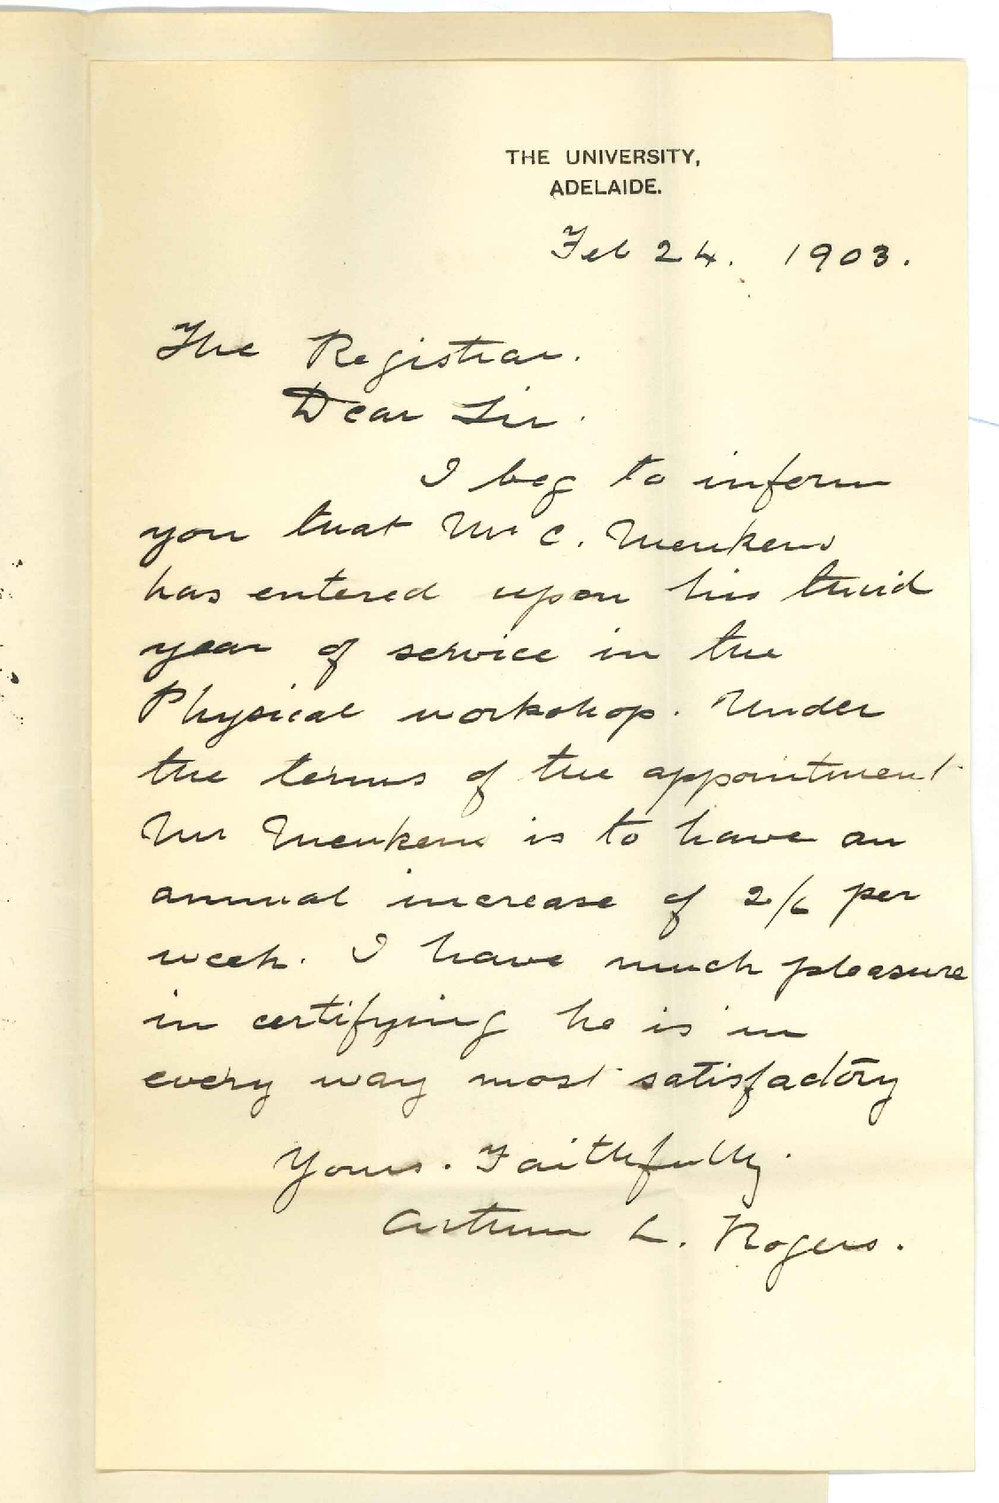 THE UNIVERSITY,
ADELAIDE.
Feb 24. 1903.
The Registrar.
Dear Sir.
I beg to inform
you that Mr C. Menkens
has entered upon his third
year of service in the
Physical workshop. Under
the terms of the appointment
Mr Menkens is to have an
annual increase of 2/6 per
week. I have much pleasure
in certifying he is in
every way most satisfactory
Yours. Faithfully.
Arthur L. Rogers.